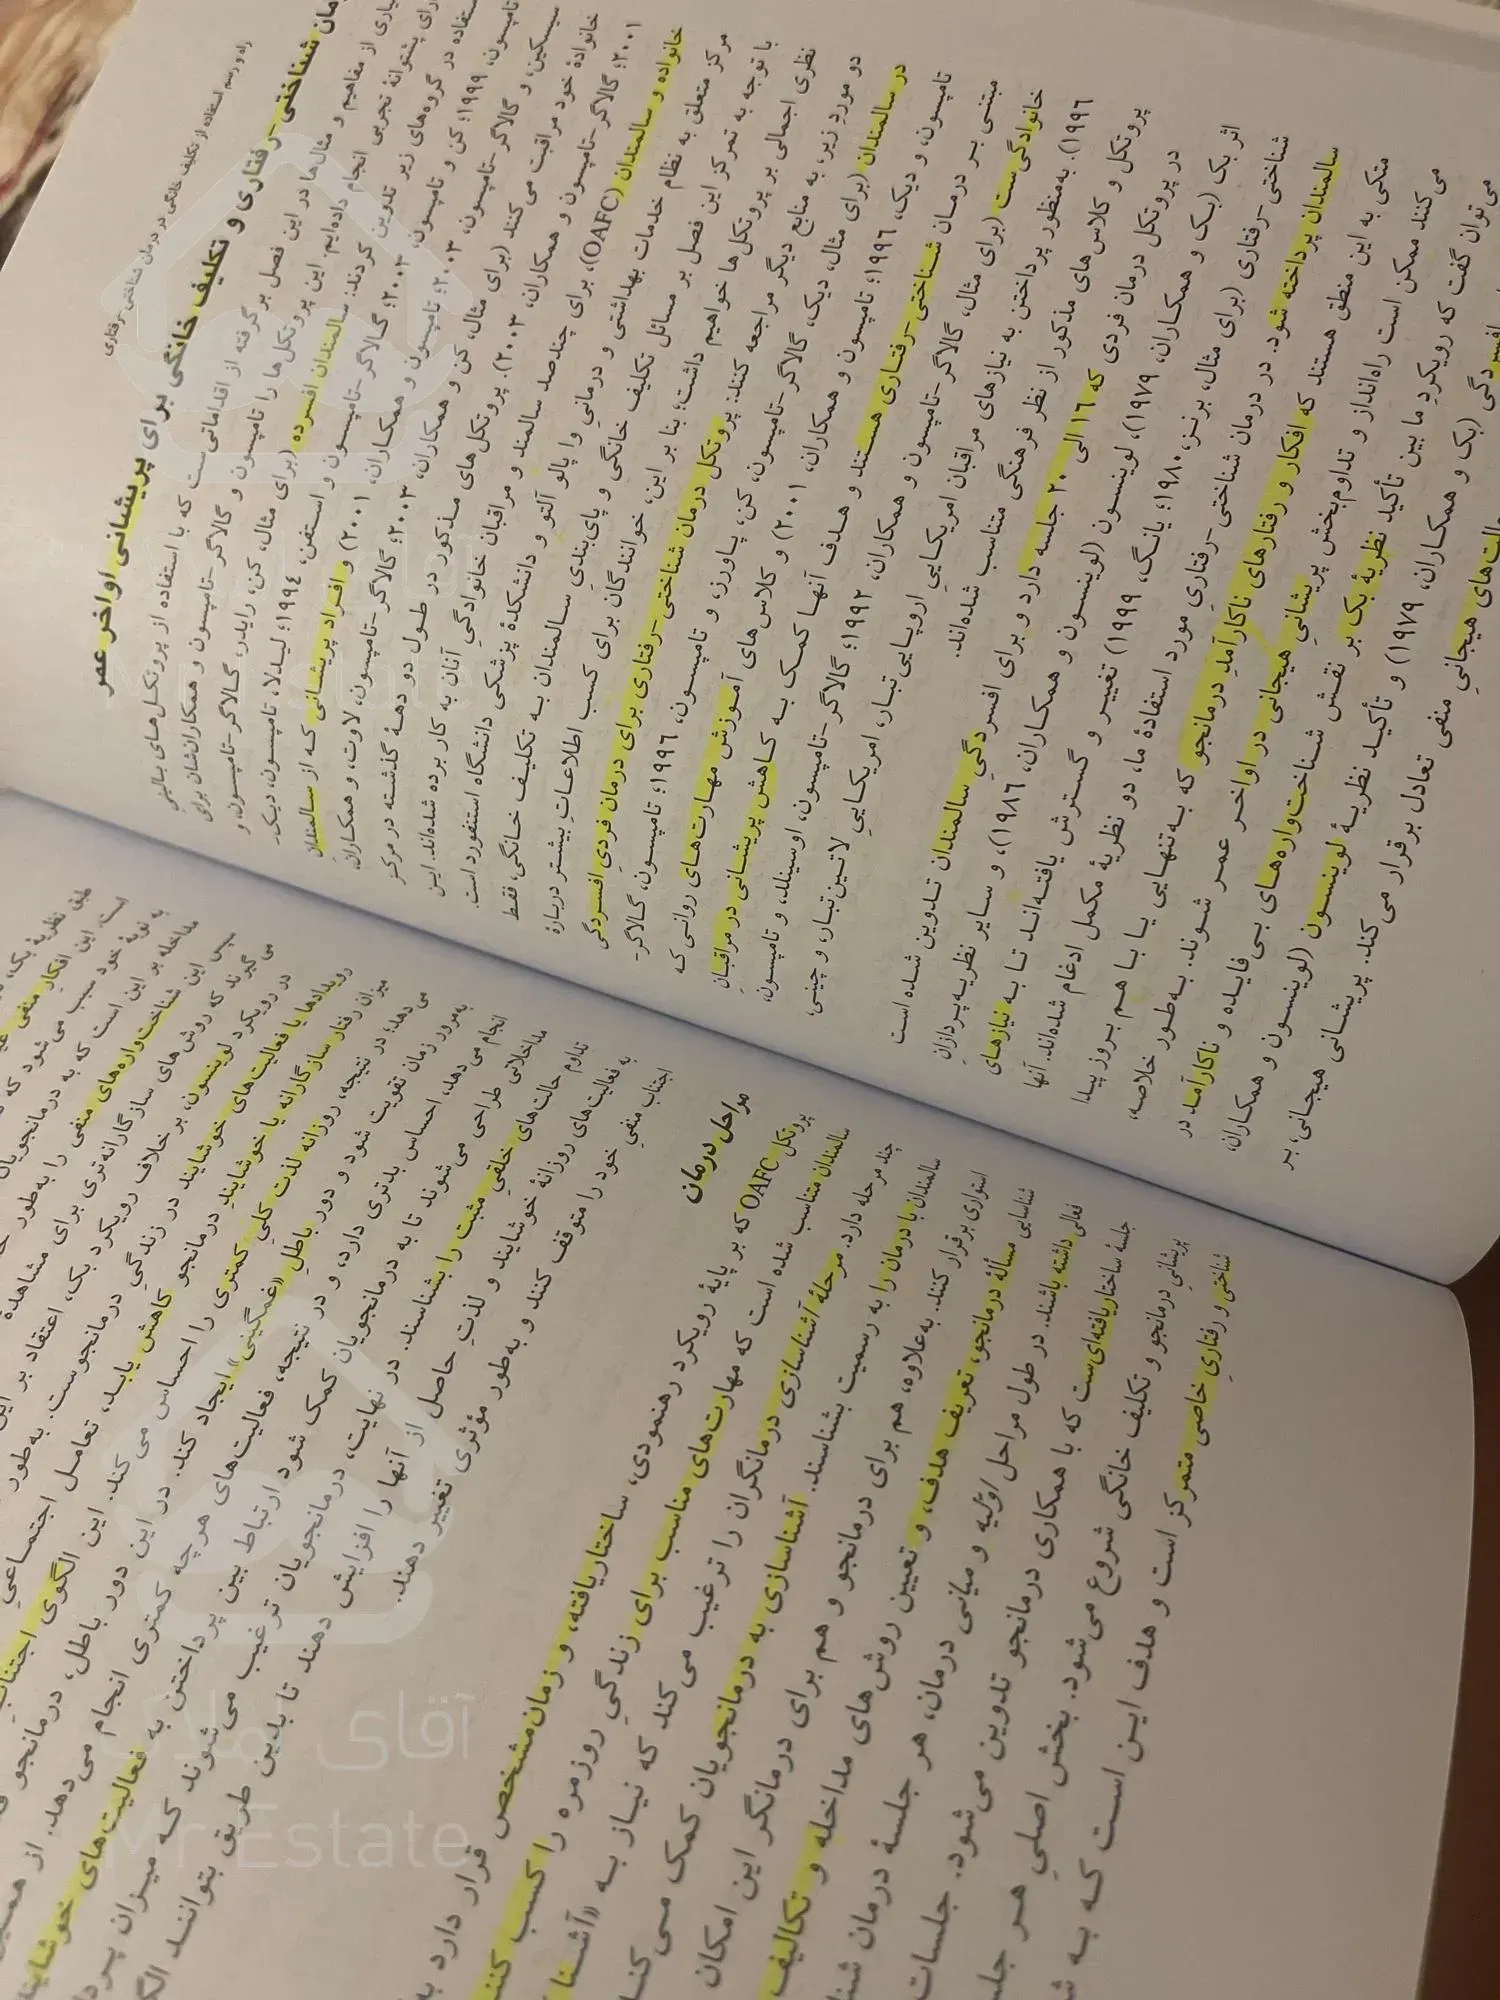 راه و رسم استفاده از تکلیف خانگی در درمان شناختی-رفتاری
درمان شناختی-رفتاری و تکلیف خانگی برای پریشانی اواخر عمر
بسیاری از مفاهیم و مثال‌ها در این فصل برگرفته از اقداماتی‌ست که با استفاده از پروتکل‌های بالینیِ
دارای پشتوانهٔ تجربی انجام داده‌ایم. این پروتکل‌ها را تامپسون و گالاگر-تامپسون و همکاران‌شان برای
استفاده در گروه‌های زیر تدوین کردند: سالمندان افسرده (برای مثال، کن، رایدر، گالاگر-تامپسون، و
تامپسون، ۱۹۹۹؛ کن و تامپسون، ۲۰۰۳؛ گالاگر-تامپسون و استفن، ۱۹۹٤؛ لیدلا، تامپسون، دیک-
سیسکین، و گالاگر-تامپسون، ۲۰۰۳؛ تامپسون و همکاران، ۲۰۰۱) و افراد پریشانی که از سالمندان
خانوادهٔ خود مراقبت می‌کنند (برای مثال، کن و همکاران، ۲۰۰۳؛ گالاگر-تامپسون، لاوت، و همکاران،
۲۰۰۱؛ گالاگر-تامپسون و همکاران، ۲۰۰۳). پروتکل‌های مذکور در طول دو دههٔ گذشته در مرکز
خانواده و سالمندان (OAFC)، برای چندصد سالمند و مراقبان خانوادگیِ آنان به کار برده شده‌اند. این
مرکز متعلق به نظام خدمات بهداشتی و درمانیِ وا پالو آلتو و دانشکدهٔ پزشکی دانشگاه استنفورد است.
با توجه به تمرکز این فصل بر مسائل تکلیف خانگی و پای‌بندیِ سالمندان به تکلیف خانگی، فقط
نظری اجمالی بر پروتکل‌ها خواهیم داشت؛ بنا بر این، خوانندگان برای کسب اطلاعاتِ بیشتر دربارهٔ
دو مورد زیر، به منابع دیگر مراجعه کنند: پروتکل درمان شناختی-رفتاری برای درمان فردیِ افسردگی
در سالمندان (برای مثال، دیک، گالاگر-تامپسون، کن، پاورز، و تامپسون، ۱۹۹٦؛ تامپسون، گالاگر-
تامپسون، و دیک، ۱۹۹٦؛ تامپسون و همکاران، ۲۰۰۱) و کلاس‌های آموزش مهارت‌های روانی که
مبتنی بر درمان شناختی-رفتاری هستند و هدف آنها کمک به کاهش پریشانی در مراقبانِ
خانوادگی‌ست (برای مثال، گالاگر-تامپسون و همکاران، ۱۹۹۲؛ گالاگر-تامپسون، اوسینلد، و تامپسون،
۱۹۹٦). به‌منظور پرداختن به نیازهای مراقبان امریکاییِ اروپایی تبار، امریکاییِ لاتین‌تبار، و چینی،
پروتکل و کلاس‌های مذکور از نظر فرهنگی متناسب شده‌اند.
در پروتکل درمان فردی که ۱٦ الی ۲۰ جلسه دارد و برای افسردگیِ سالمندان تدوین شده است
اثر بک (بک و همکاران، ۱۹۷۹)، لوینسون (لوینسون و همکاران، ۱۹۸٦)، و سایر نظریه‌پردازانِ
شناختی-رفتاری (برای مثال، برنز، ۱۹۸۰؛ یانگ، ۱۹۹۹) تغییر و گسترش یافته‌اند تا به نیازهای
سالمندان پرداخته شود. در درمان شناختی-رفتاریِ مورد استفادهٔ ما، دو نظریهٔ مکمل ادغام شده‌اند. آنها
متکی به این منطق هستند که افکار و رفتارهای ناکارآمدِ درمانجو که به‌تنهایی یا با هم بروز پیدا
می‌کنند ممکن است راه‌انداز و تداوم‌بخش پریشانیِ هیجانی در اواخر عمر شوند. به‌طور خلاصه،
می‌توان گفت که رویکردِ ما بین تأکید نظریهٔ بک بر نقش شناخت‌واره‌های بی‌فایده و ناکارآمد در
افسردگی (بک و همکاران، ۱۹۷۹) و تأکید نظریهٔ لوینسون (لوینسون و همکاران،
حالت‌های هیجانیِ منفی تعادل برقرار می‌کند. پریشانی هیجانی، بر
طبق نظریهٔ بک،
است. این افکار منفی
به نوبهٔ خود سبب می‌شود که
مداخله بر این است که به درمانجویان
سپس این شناخت‌واره‌های منفی را به‌طور
می‌گیرند که روش‌های سازگارانه‌تری برای مشاهدهٔ
در رویکرد لوینسون، بر خلاف رویکرد بک، اعتقاد بر این
رویدادها یا فعالیت‌های خوشایند در زندگیِ درمانجوست. به‌طور
میزان رفتار سازگارانه یا خوشایندِ درمانجو کاهش یابد، تعامل اجتماعیِ
می‌دهد؛ در نتیجه، روزانه لذت کلیِ کمتری را احساس می‌کند. این الگوی اجتنابی
به‌مرور زمان تقویت شود و دور باطلِ «غمگینی» ایجاد کند. در این دور باطل، درمانجو
انجام می‌دهد، احساس بدتری دارد، و در نتیجه، فعالیت‌های هرچه کمتری انجام می‌دهد. از همین
مداخلاتی طراحی می‌شوند تا به درمانجویان کمک شود ارتباط بین پرداختن به فعالیت‌های خوشایند
تداوم حالت‌های خلقیِ مثبت را بشناسند. در نهایت، درمانجویان ترغیب می‌شوند که میزان
به فعالیت‌های روزانهٔ خوشایند و لذتِ حاصل از آنها را افزایش دهند تا بدین طریق بتوانند
اجتناب منفیِ خود را متوقف کنند و به‌طور مؤثری تغییر دهند.
مراحل درمان
پروتکل OAFC که بر پایهٔ رویکرد رهنمودی، ساختاریافته، و زمان‌مشخص قرار دارد
سالمندان متناسب شده است که مهارت‌های مناسب برای زندگیِ روزمره را کسب کنند
چند مرحله دارد. مرحلهٔ آشناسازی درمانگران را ترغیب می‌کند که نیاز به «آشنا
سالمندان با درمان را به رسمیت بشناسند. آشناسازی به درمانجویان کمک می‌کند
استواری برقرار کنند. به‌علاوه، هم برای درمانجو و هم برای درمانگر این امکان
شناساییِ مسألهٔ درمانجو، تعریف هدف، و تعیین روش‌های مداخله و تکالیف
فعالی داشته باشند. در طول مراحل اوّلیه و میانی درمان، هر جلسهٔ درمان
جلسهٔ ساختاریافته‌ای‌ست که با همکاری درمانجو تدوین می‌شود. جلسات
پریشانیِ درمانجو و تکلیف خانگی شروع می‌شود. بخش اصلیِ هر
شناختی و رفتاریِ خاصی متمرکز است و هدف این است که به
آقای املاک
Mr Estate
آقای املاک
Mr Estate